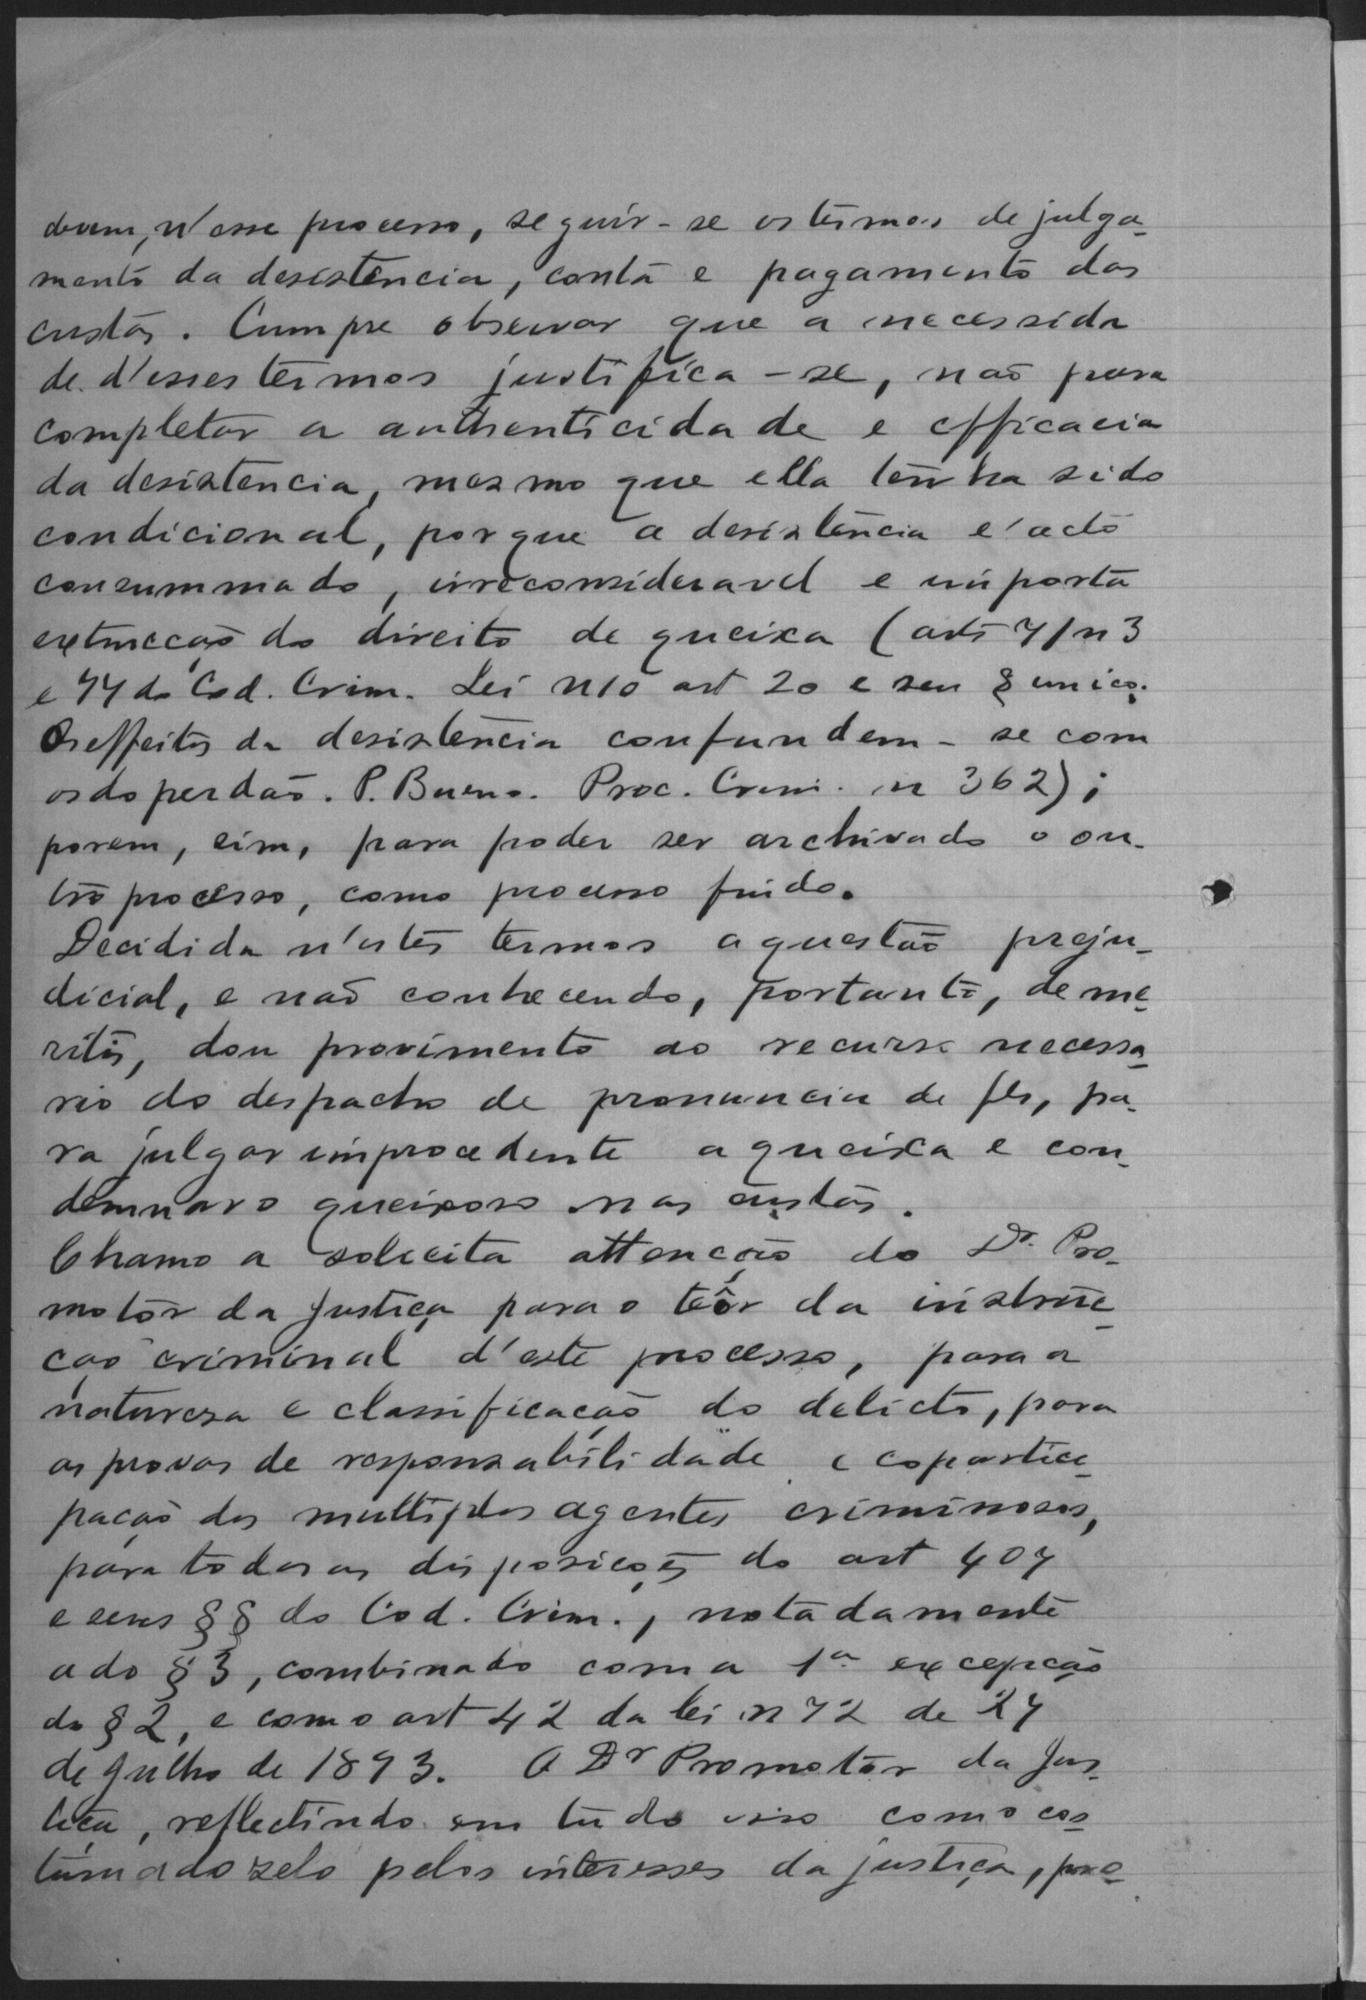 devem, n'esse processo, seguir-se os termos de julga-
mento da desistencia, conta e pagamento das
custas. Cumpre observar que a necessida
de d'esses termos justifica-se, não para
completar a authenticidade e efficacia
da desistencia, mesmo que ella tenha sido
condicional, porque a desistencia é acto
consummado, irreconsideravel e importa
extincção do direito de queixa (arts 71 n 3
e 77 do Cod. Crim. Lei n 10 art 20 e seu § unico.
Os effeitos da desistencia confundem-se com
os do perdão. P. Bueno. Proc. Crim. n 362);
porem, sim, para poder ser archivado o ou-
tro processo, como processo findo.
Decidida n'estes termos a questão preju-
dicial, e não conhecendo, portanto, de me-
ritis, dou provimento ao recurso necessa-
rio do despacho de pronuncia de fls, pa-
ra julgar improcedente a queixa e con-
demnar o queixoso nas custas.
Chamo a solicita attenção do Dr. Pro-
motor da Justiça para o teôr da instruc-
ção criminal d'este processo, para a
natureza e classificação do delicto, para
as provas de responsabilidade e copartici-
pação dos multiplos agentes criminosos,
para todas as disposições do art 407
e seus §§ do Cod. Crim., notadamente
a do § 3, combinado com a 1ª excepção
do § 2, e com o art 42 da lei n 72 de 27
de Julho de 1893. O Dr Promotor da Jus-
tiça, reflectindo em tudo isso com o cos-
tumado zelo pelos interesses da justiça, pro-